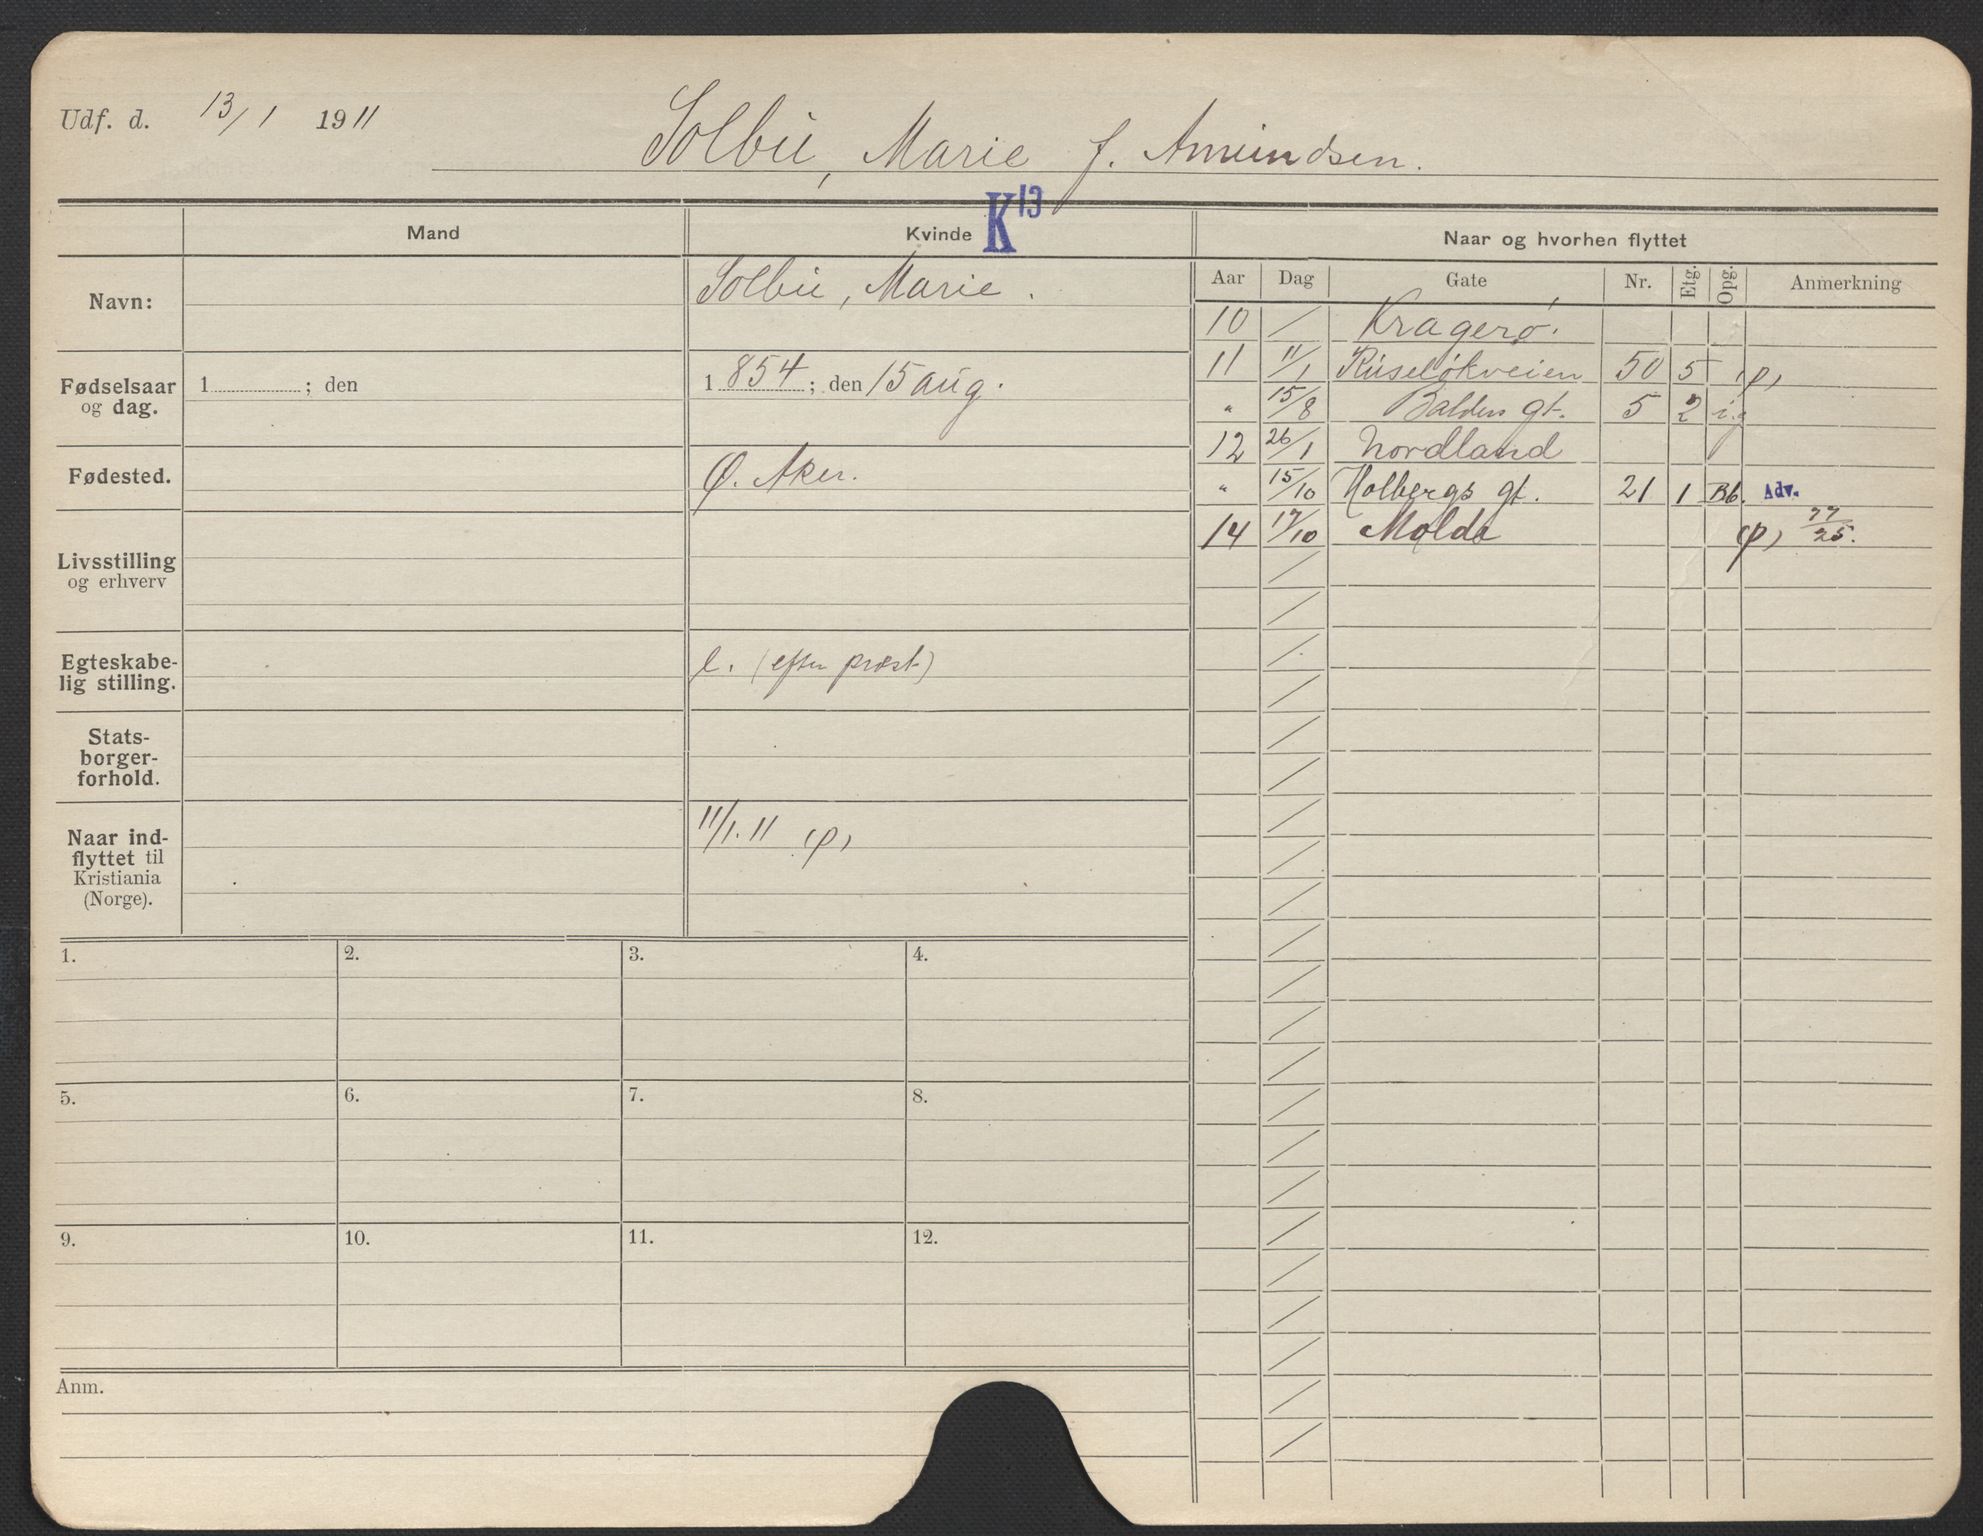 Udf. d. 13/1 1911
Solbu, Marie f. Amundsen.
K13
Mand Kvinde Naar og hvorhen flyttet
Aar Dag Gate Nr. Etg. Opg. Anmerkning
Navn: Solbu, Marie.
Fødselsaar og dag. 1 ; den 1 854 ; den 15 aug.
Fødested. Ø. Aker.
Livsstilling og erhverv
Egteskabe-
lig stilling. e. (efter præst)
Stats-
borger-
forhold.
Naar ind-
flyttet til
Kristiania
(Norge). 11/1.11 (p)
10 / Kragerø.
11 11/1 Ruseløkveien 50 5 (p)
" 15/8 Balders gt. 5 2 i.g
12 26/1 Nordland
" 15/10 Holbergs gt. 21 1 Bb. Adv.
14 17/10 Molde (p) 77/25.
1. 2. 3. 4.
5. 6. 7. 8.
9. 10. 11. 12.
Anm.